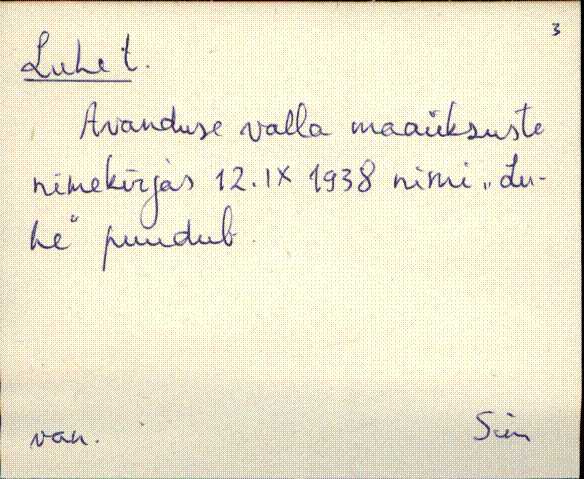 3
Luhe t.
Avanduse valla maaüksuste
nimekirjas 12.IX 1938 nimi „Lu-
he“ puudub
van.
Sim